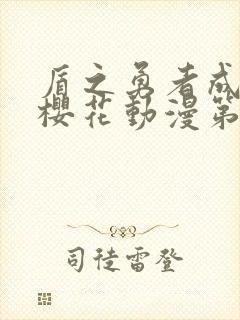 盾之勇者成
櫻花動漫第
司徒雷登